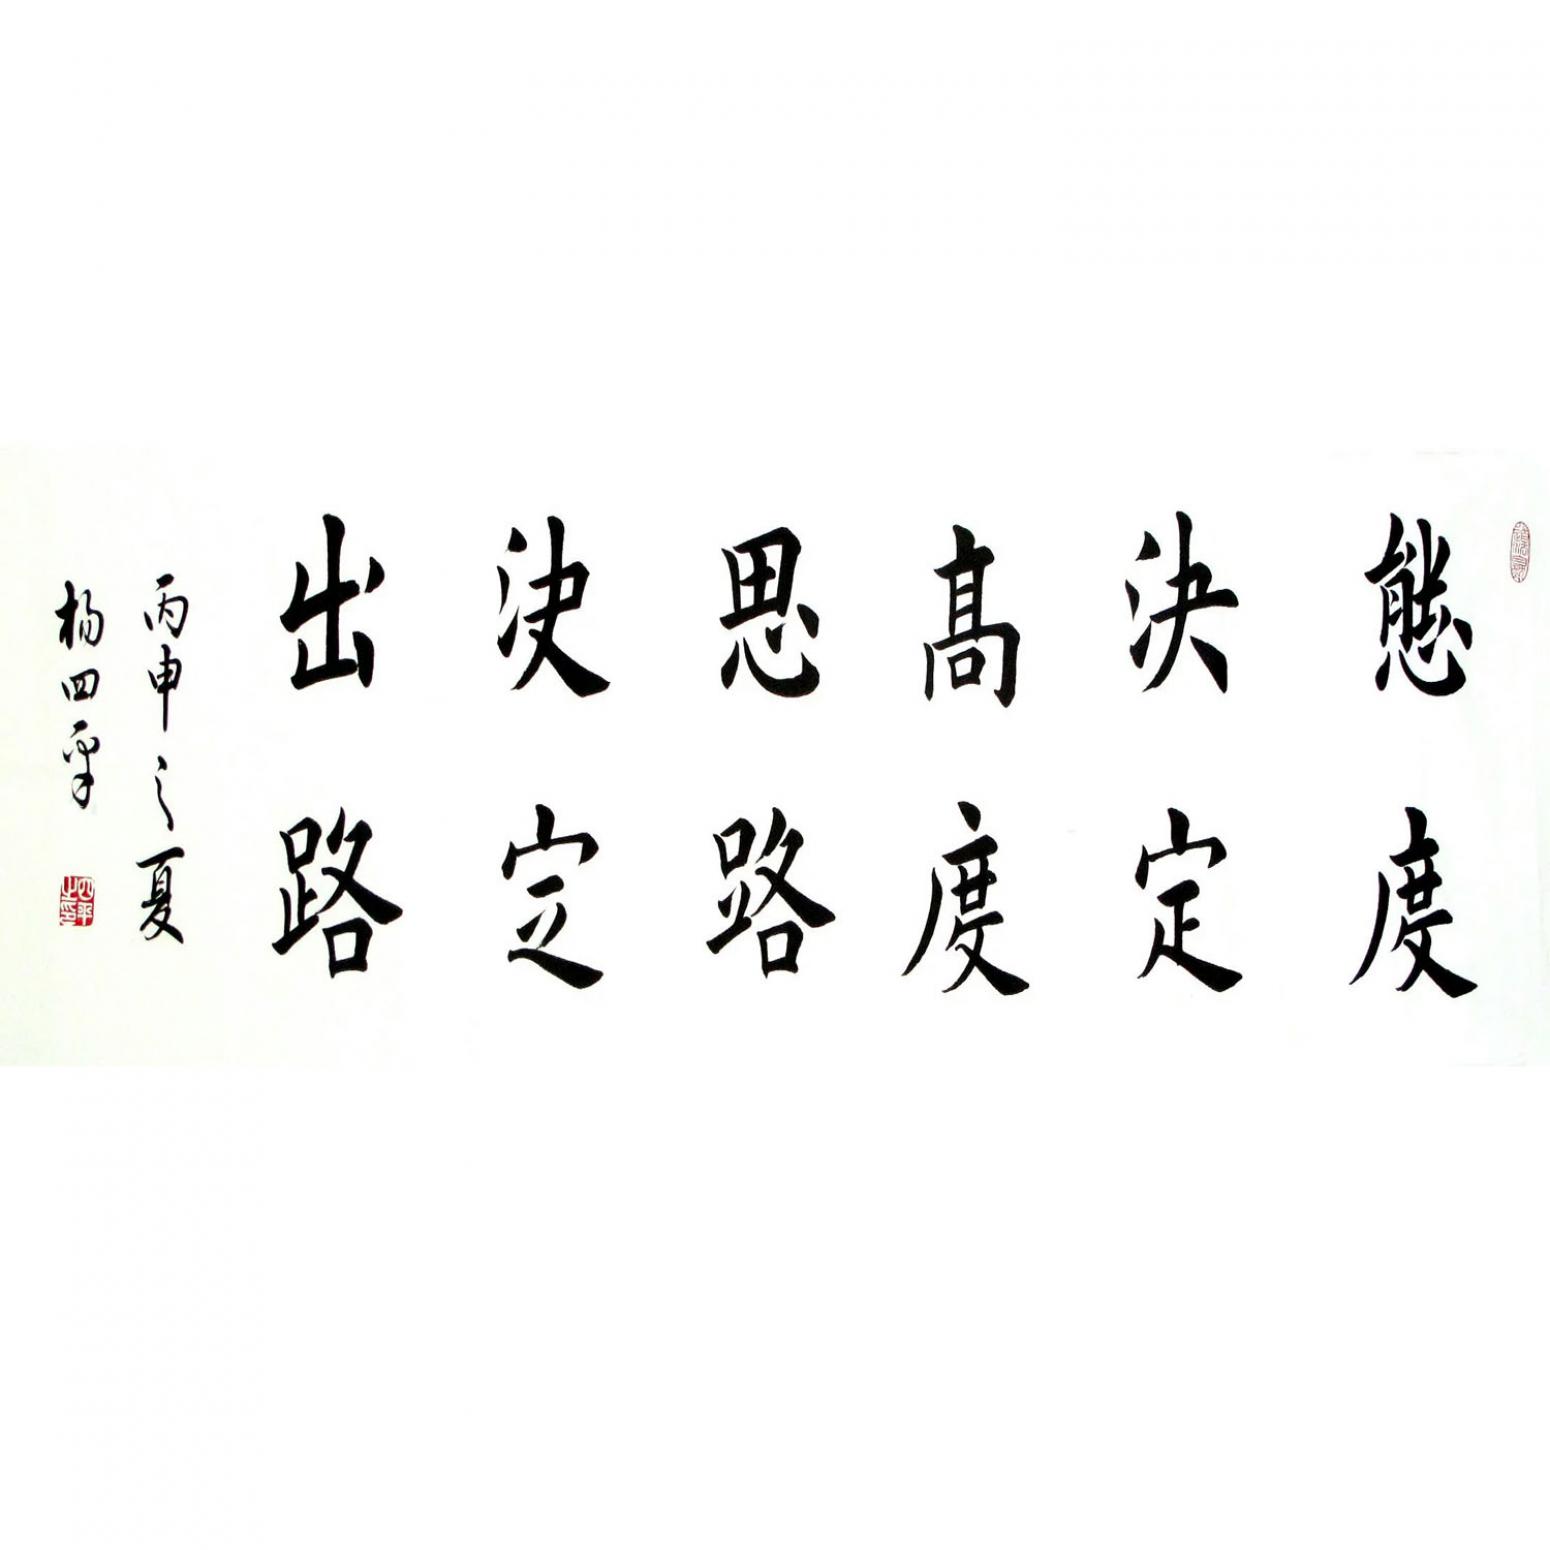 態度
決定
高度
思路
決定
出路
丙申之夏
楊四平
四平之印